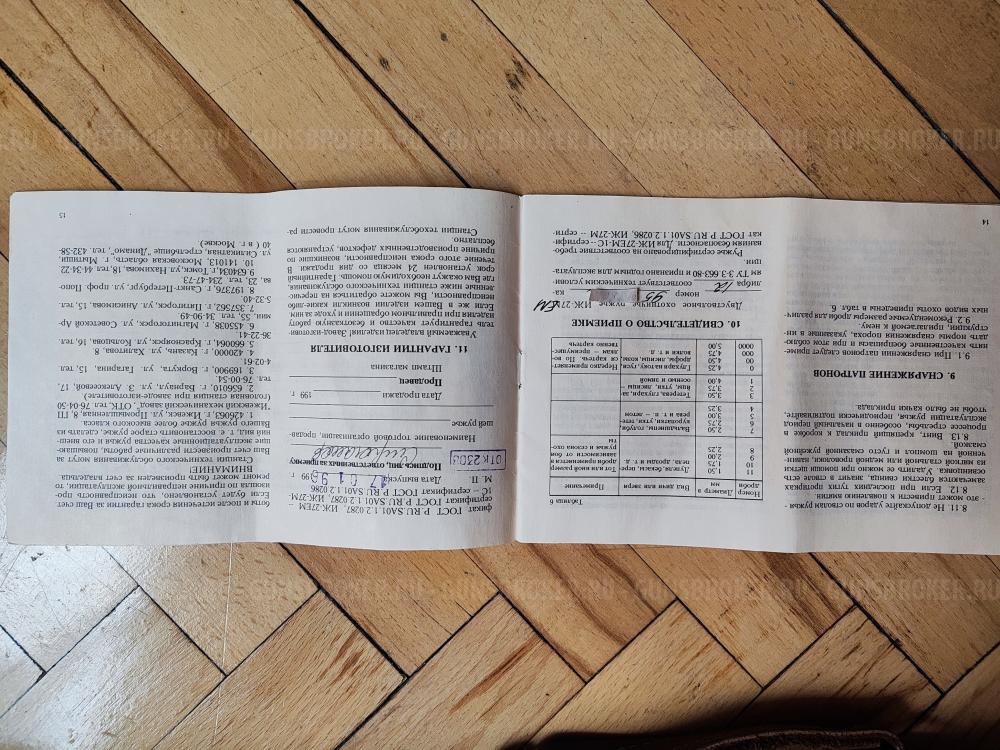 8.11. Не допускайте ударов по стволам ружья -
- это может привести к появлению вмятин.
8.12. Если при последних тугих протирках
замечаются блестки свинца, значит в стволе есть
освинцовка. Удалить ее можно при помощи щетки
из мягкой стальной или медной проволоки, навин-
ченной на шомпол и густо смазанной ружейной
смазкой.
8.13. Винт, крепящий приклад к коробке в
процессе стрельбы, особенно в начальный период
эксплуатации ружья, периодически подтягивайте,
чтобы не было качки приклада.
9. СНАРЯЖЕНИЕ ПАТРОНОВ
9.1. При снаряжении патронов следует приме-
нять качественные боеприпасы и при этом соблю-
дать нормы снаряжения пороха, указанные в ин-
струкции, прилагаемой к нему.
9.2. Рекомендуемые размеры дроби для различ-
ных видов охоты приведены в табл. 6
14
Таблица 6
Номер дроби
Диаметр в мм
Вид дичи или зверя
Примечание
11 1,50
10 1,75
9 2,00
8 2,25
Дупеля, бекасы, пере-
пела, дрозды и т. д.
Тот или иной размер
дроби применяется в
зависимости от боя
ружья и сезона охо-
ты
7 2,50
6 2,75
5 3,00
4 3,25
Вальдшнепы, голуби,
куропатки, утки, тете-
рева и т. п. – летом
3 3,50
2 3,75
1 4,00
Тетерева, глухари, за-
йцы, утки, лисицы –
осенью и зимой
0 4,25
00 4,50
000 4,75
0000 5,00
Глухари на току, гуси,
дрофы, лисицы, козы,
волки и т. д.
Нередко применяет-
ся картечь. По во-
лкам – преимущес-
твенно картечь
10. СВИДЕТЕЛЬСТВО О ПРИЕМКЕ
Двуствольное охотничье ружье ИЖ-27 ЕМ
номер 95 ка-
либра 12 соответствует техническим услови
ям ТУ 3-3 863-83 и признано годным для эксплуата-
ции.
Ружье сертифицировано на соответствие требо-
ваниям безопасности. Для ИЖ-27ЕМ-1С- сертифи-
кат ГОСТ Р RU.SA01.1.2.0286, ИЖ-27М – серти-
фикат ГОСТ Р RU.SA01.1.2.0287, ИЖ-27ЕМ –
сертификат ГОСТ Р RU.SA01.1.2.0287, ИЖ-27М-
1С – сертификат ГОСТ Р RU.SA01.1.2.0286
М. П. Дата выпуска 17 01 96 199 г
Подпись лиц, ответственных за приемку
ОТК2303
Наименование торговой организации, продав-
шей ружье
Дата продажи 199 г
Продавец
Штамп магазина
11. ГАРАНТИИ ИЗГОТОВИТЕЛЯ
Уважаемый владелец изделия! Завод-изготови-
тель гарантирует качество и безотказную работу
изделия при правильном обращении и уходе за ним.
Если же в Вашем изделии возникнет какая-либо
неисправность, Вы можете обратиться на перечис-
ленные ниже станции технического обслуживания,
где Вам окажут необходимую помощь. Гарантийный
срок установлен 24 месяца со дня продажи. В
течение этого срока неисправности, возникшие по
причине производственных дефектов, устраняются
бесплатно.
Станции техобслуживания могут провести ра-
боты и после истечения срока гарантии за Ваш счет.
Если будет установлено, что неисправность про-
изошла по причине неправильной эксплуатации, то
ремонт может быть произведен за счет владельца
ВНИМАНИЕ!
Станции технического обслуживания могут за
Ваш счет произвести различные работы, повышаю-
щие эксплуатационные качества ружья и его внеш-
ний вид, т. е. восстановить старое ружье, сделать из
Вашего ружья ружье более высокого класса.
1. 426063, г. Ижевск, ул. Промышленная, 8, ГП
"Ижевский механический завод", ОТК, тел. 76-04-50
(головная станция при заводе-изготовителе)
2. 656010, г. Барнаул, ул. Э. Алексеевой, 17,
тел. 76-00-54.
3. 169900, г. Воркута, ул. Гагарина, 15, тел.
4-02-61.
4. 420000, г. Казань, ул. Халтурина, 8
5. 660064, г. Красноярск, ул. Кольцова, 16, тел.
36-22-41.
6. 455038, г. Магнитогорск, ул. Советской Ар-
мии, 53, тел. 34-90-49.
7. 357562, г. Пятигорск, ул. Аллея, 15, тел.
5-32-40.
8. 197376, г. Санкт-Петербург, ул. проф. Попо-
ва, 23, тел. 234-47-73.
9. 634034, г. Томск, ул. Нахимова, 18, тел 44-34-22
10. 141013, Московская область, г. Мытищи,
ул. Силикатная, стрельбище "Динамо", тел. 432-58-
40 ( в г. Москве)
15
GUNSBROKER.RU